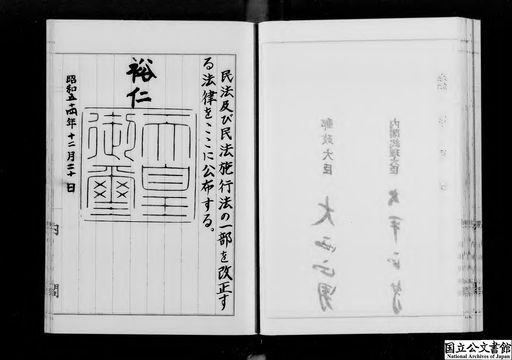 民法及び民法施行法の一部を改正す
る法律をここに公布する。
裕仁
天皇
御璽
昭和五十四年十二月二十日
内閣
内閣総理大臣
郵政大臣
国立公文書館
National Archives of Japan